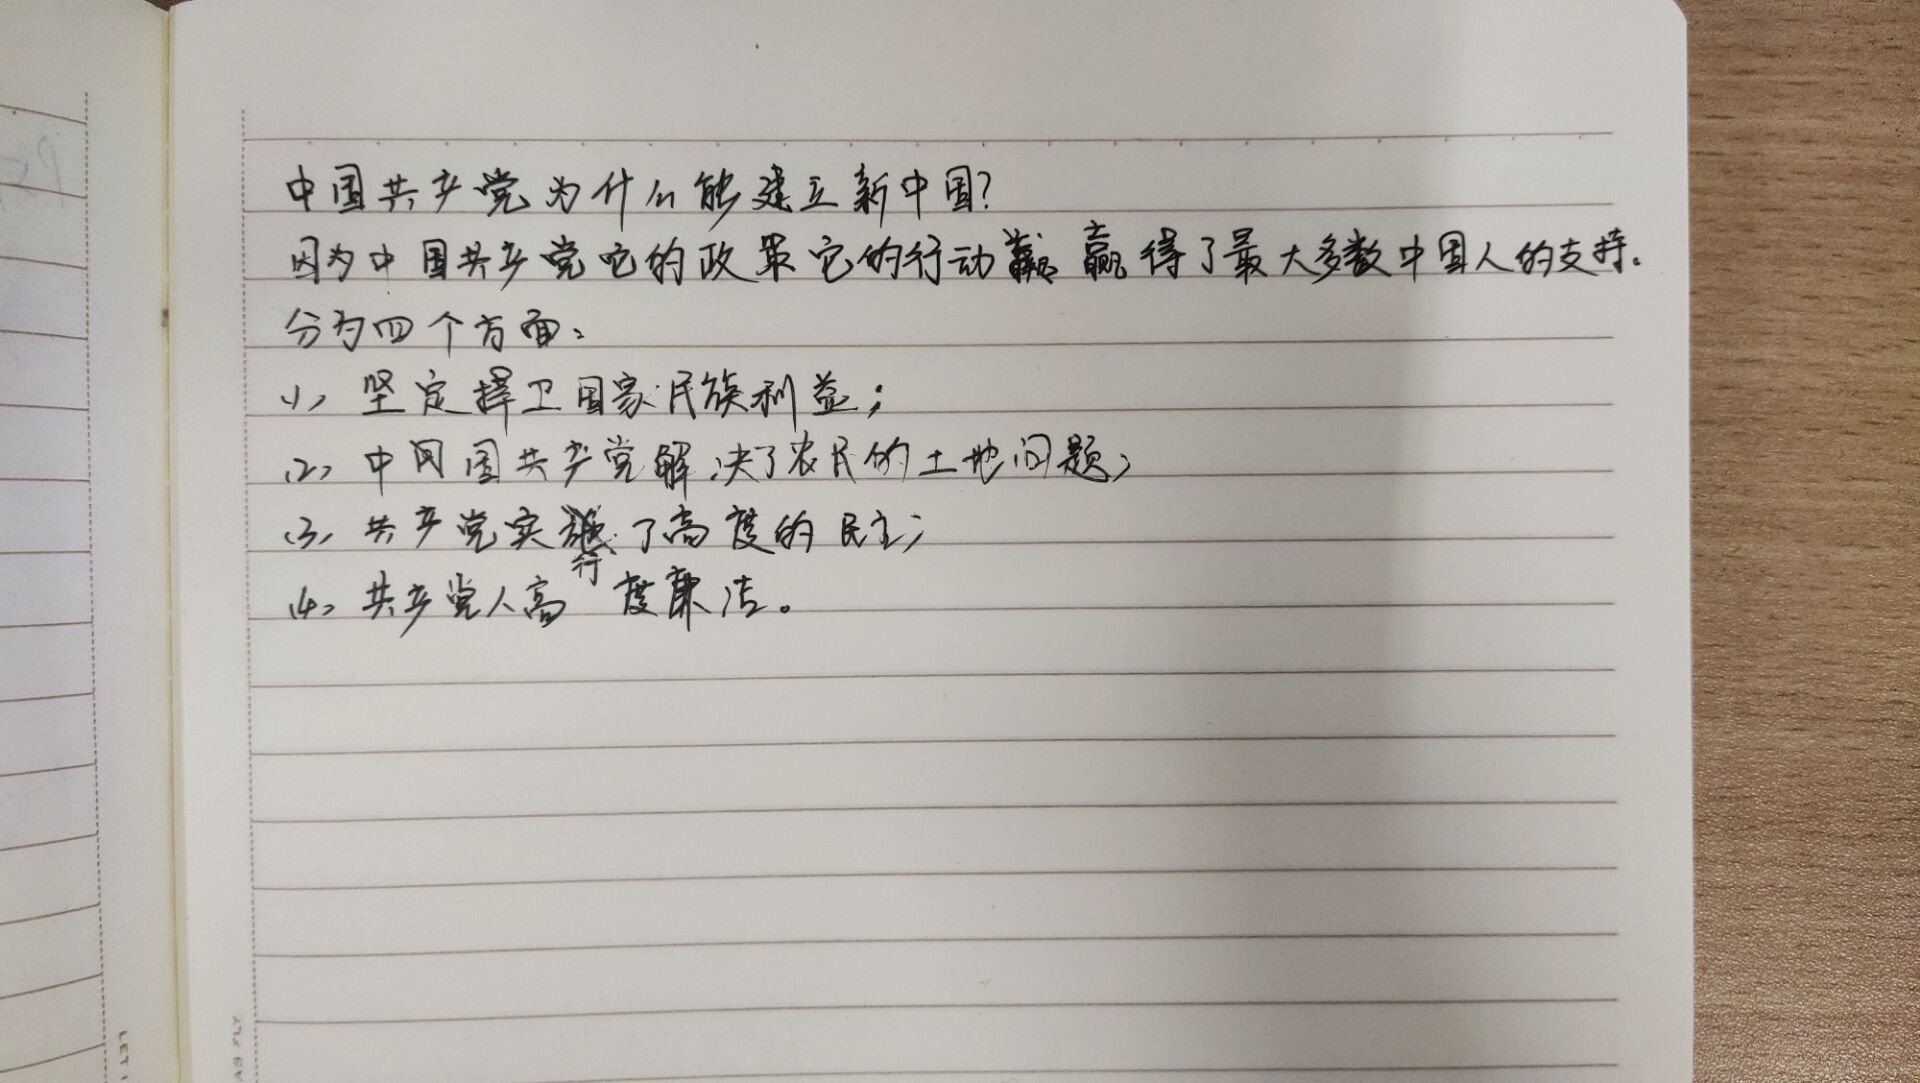 中国共产党为什么能建立新中国?
因为中国共产党它的政策它的行动赢得了最大多数中国人的支持.
分为四个方面:
(1) 坚定捍卫国家民族利益;
(2) 中国共产党解决了农民的土地问题;
(3) 共产党实行了高度的民主;
(4) 共产党人高度廉洁。
LET
AS FLY